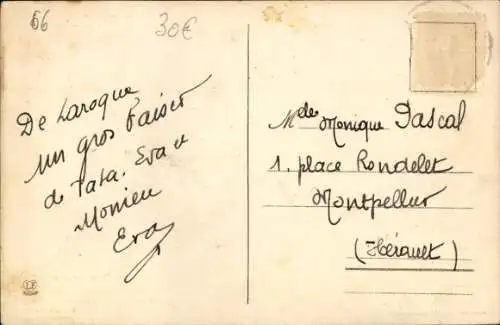 66
30€
De Laroque
un gros baiser
de Tata. Eva et
Monieu
Eva
Melle Monique Pascal
1, place Rondelet
Montpellier
(Hérault)